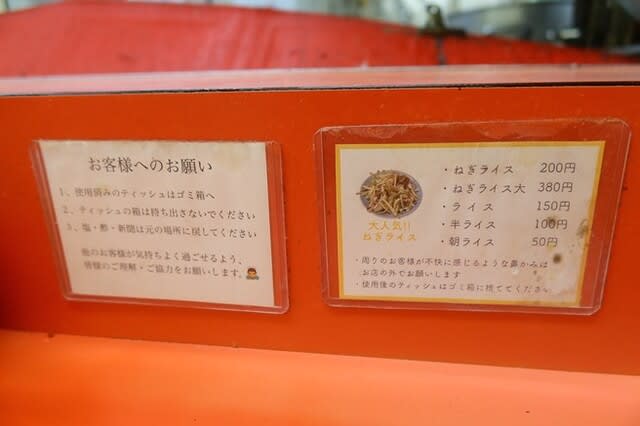 お客様へのお願い
1、使用済みのティッシュはゴミ箱へ
2、ティッシュの箱は持ち出さないでください
3、塩・酢・新聞は元の場所に戻してください
他のお客様が気持ちよく過ごせるよう、
皆様のご理解・ご協力をお願いします。
・ねぎライス 200円
・ねぎライス大 380円
・ライス 150円
・半ライス 100円
・朝ライス 50円
大人気!!
ねぎライス
・周りのお客様が不快に感じるような鼻かみは
お店の外でお願いします
・使用後のティッシュはゴミ箱に捨ててください